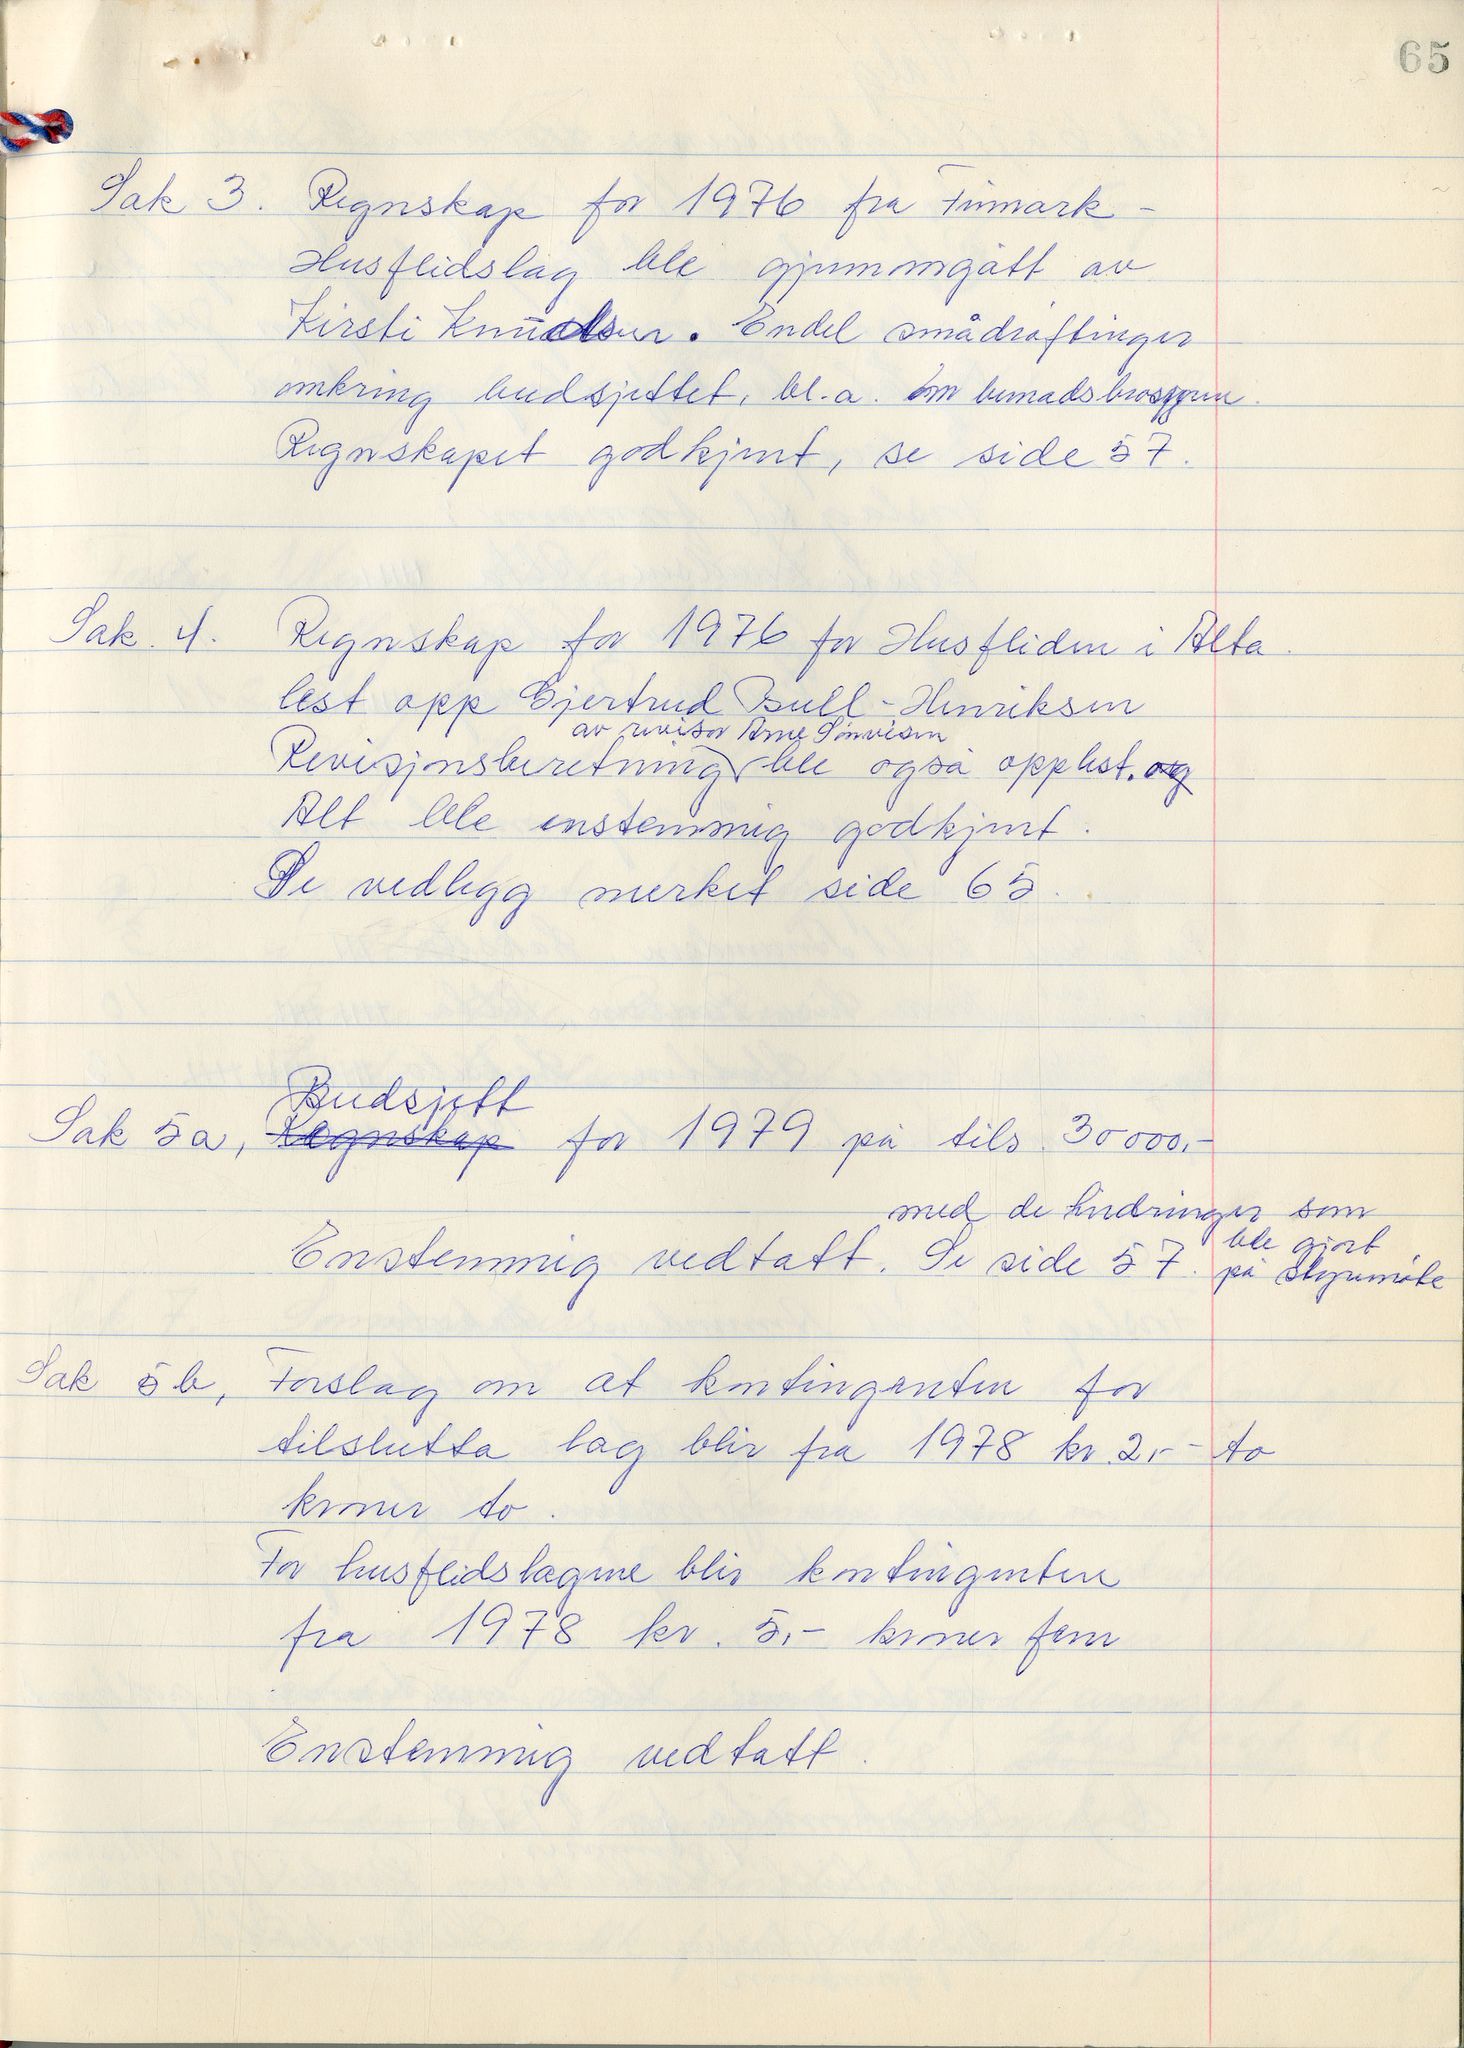 65
Sak 3. Regnskap for 1976 fra Finmark-
Husflidslag ble gjennomgått av
Kirsti Knudsen. Endel smådrøftinger
omkring budsjettet, bl.a. om bunadsbrosjyren.
Regnskapet godkjent, se side 57.
Sak. 4. Regnskap for 1976 for Husfliden i Alta.
lest opp Gjertrud Bull-Henriksen
av revisor Arne
Revisjonsberetning ble også opplest. og
Alt ble enstemmig godkjent.
Se vedlegg merket side 65.
Budsjett
Sak 5a, Regnskap for 1979 på tils. 30000,-
med de endringer som
ble gjort
Enstemmig vedtatt. Se side 57. på styremøte
Sak 5b, Forslag om at kontingenten for
tilslutta lag blir fra 1978 kr. 2,- to
kroner to.
For husflidslagene blir kontingenten
fra 1978 kr. 5,- kroner fem
Enstemmig vedtatt.